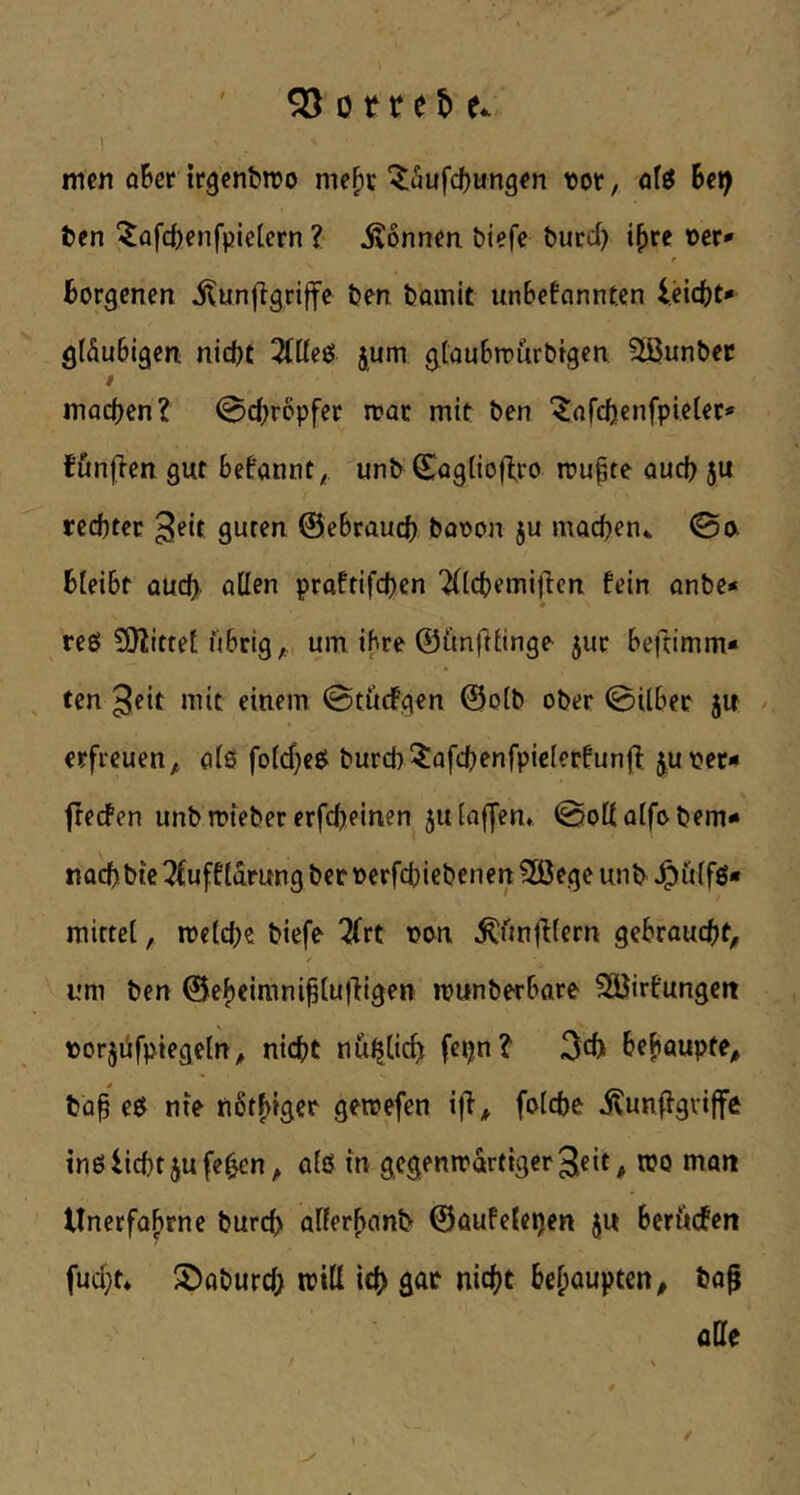 Vorrede.
men aber irgendwo mehr Täuschungen vor, als bey
den Taschenspielern? Können diese durch ihre ver-
borgenen Kunstgriffe den damit unbekannten leicht-
gläubigen nicht Alles zum glaubwürdigen Wunder
machen? Schröpfer war mit den Taschenspieler-
künsten gut bekannt, und Cagliostro wußte auch zu
rechter Zeit guten Gebrauch davon zu machen. So
bleibt auch allen praktischen Alchemisten kein ande-
res Mittel übrig, um ihre Günstlinge zur bestimm-
ten Zeit mit einem Stückgen Gold oder Silber zu
erfreuen, als solches durch Taschenspielerkunst zu ver-
stecken und wieder erscheinen zu lassen. Soll also dem-
nach die Aufklärung der verschiedenen Wege und Hülfs-
mittel, welche diese Art von Künstlern gebraucht,
um den Geheimnißlustigen wunderbare Wirkungen
vorzuspiegeln, nicht nützlich seyn? Ich behaupte,
daß es nie nöthiger gewesen ist, solche Kunstgriffe
ins Licht zu setzen, als in gegenwärtiger Zeit, wo man
Unerfahrne durch allerhand Gaukeleyen zu berücken
sucht. Dadurch will ich gar nicht behaupten, daß
alle